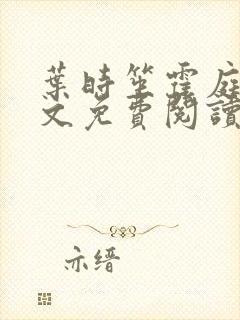 葉時笙霆庭
文免費閱讀
亦缙